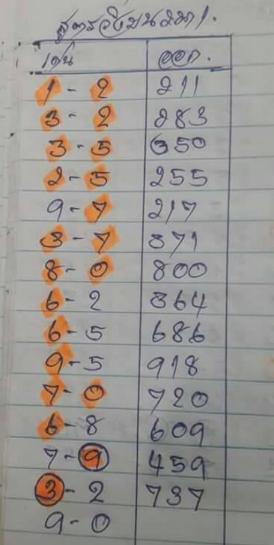 สูตรวิ่งบน
เด่น ออก.
1 - 2 211
3 - 2 283
3 - 5 350
2 - 5 255
9 - 7 217
3 - 7 371
8 - 0 800
6 - 2 364
6 - 5 686
9 - 5 918
7 - 0 720
6 - 8 609
7 - 9 459
3 - 2 737
9 - 0